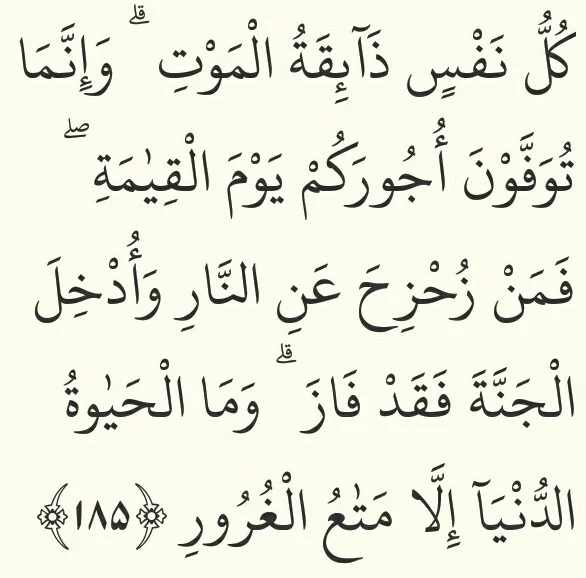 كُلُّ نَفْسٍ ذَآىِٕقَةُ الْمَوْتِ ۗ وَاِنَّمَا
تُوَفَّوْنَ اُجُورَكُمْ يَوْمَ الْقِيٰمَةِ ۖ
فَمَنْ زُحْزِحَ عَنِ النَّارِ وَاُدْخِلَ
الْجَنَّةَ فَقَدْ فَازَ ۗ وَمَا الْحَيٰوةُ
الدُّنْيَآ اِلَّا مَتٰعُ الْغُرُورِ ﴿١٨٥﴾